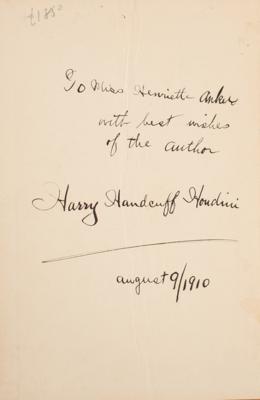 To Miss Henriette Anker
with best wishes
of the author
Harry Handcuff Houdini
august 9/1910